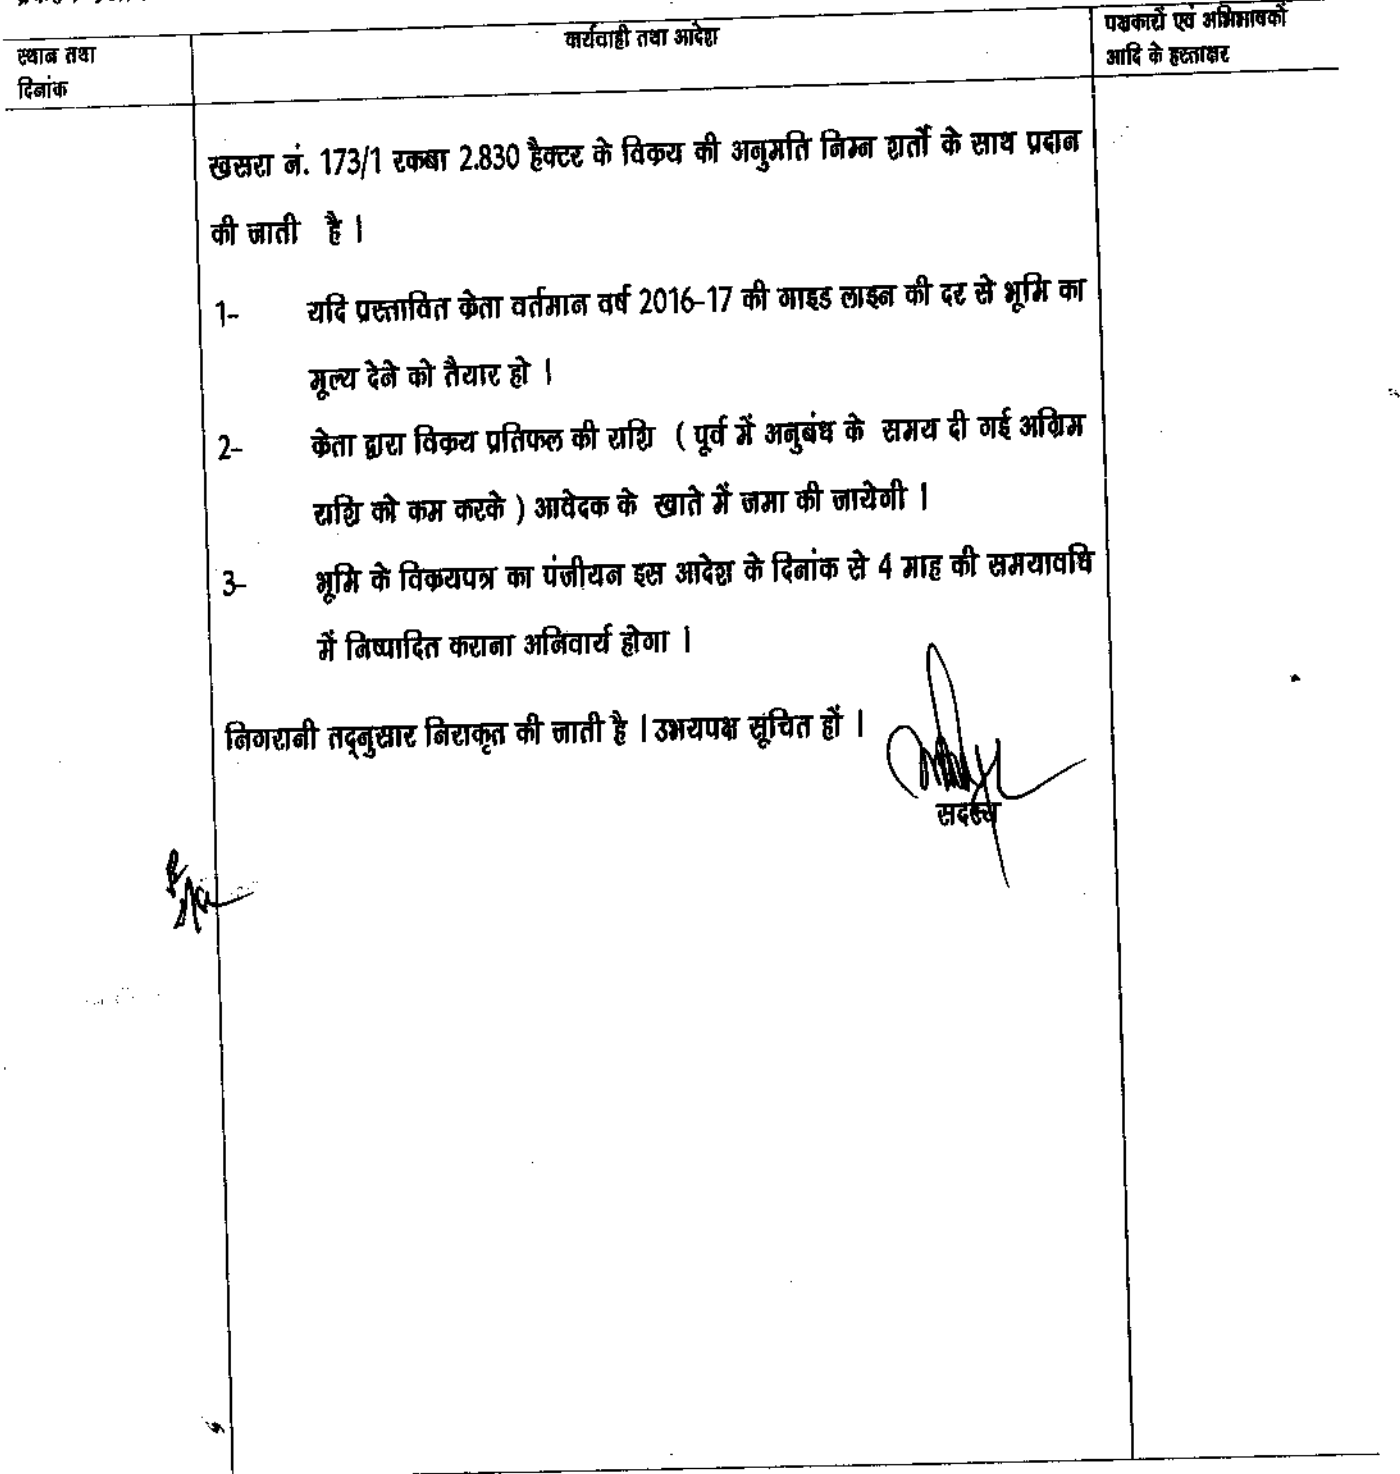 स्थान तथा
दिनांक
कार्यवाही तथा आदेश
पक्षकारों एवं अभिभाषकों
आदि के हस्ताक्षर
खसरा नं. 173/1 रकबा 2.830 हैक्टर के विक्रय की अनुमति निम्न शर्तों के साथ प्रदान
की जाती है ।
1- यदि प्रस्तावित क्रेता वर्तमान वर्ष 2016-17 की गाइड लाइन की दर से भूमि का
मूल्य देने को तैयार हो ।
2- क्रेता द्वारा विक्रय प्रतिफल की राशि ( पूर्व में अनुबंध के समय दी गई अग्रिम
राशि को कम करके ) आवेदक के खाते में जमा की जायेगी ।
3- भूमि के विक्रयपत्र का पंजीयन इस आदेश के दिनांक से 4 माह की समयावधि
में निष्पादित कराना अनिवार्य होगा ।
निगरानी तद्नुसार निराकृत की जाती है । उभयपक्ष सूचित हों ।
सदस्य